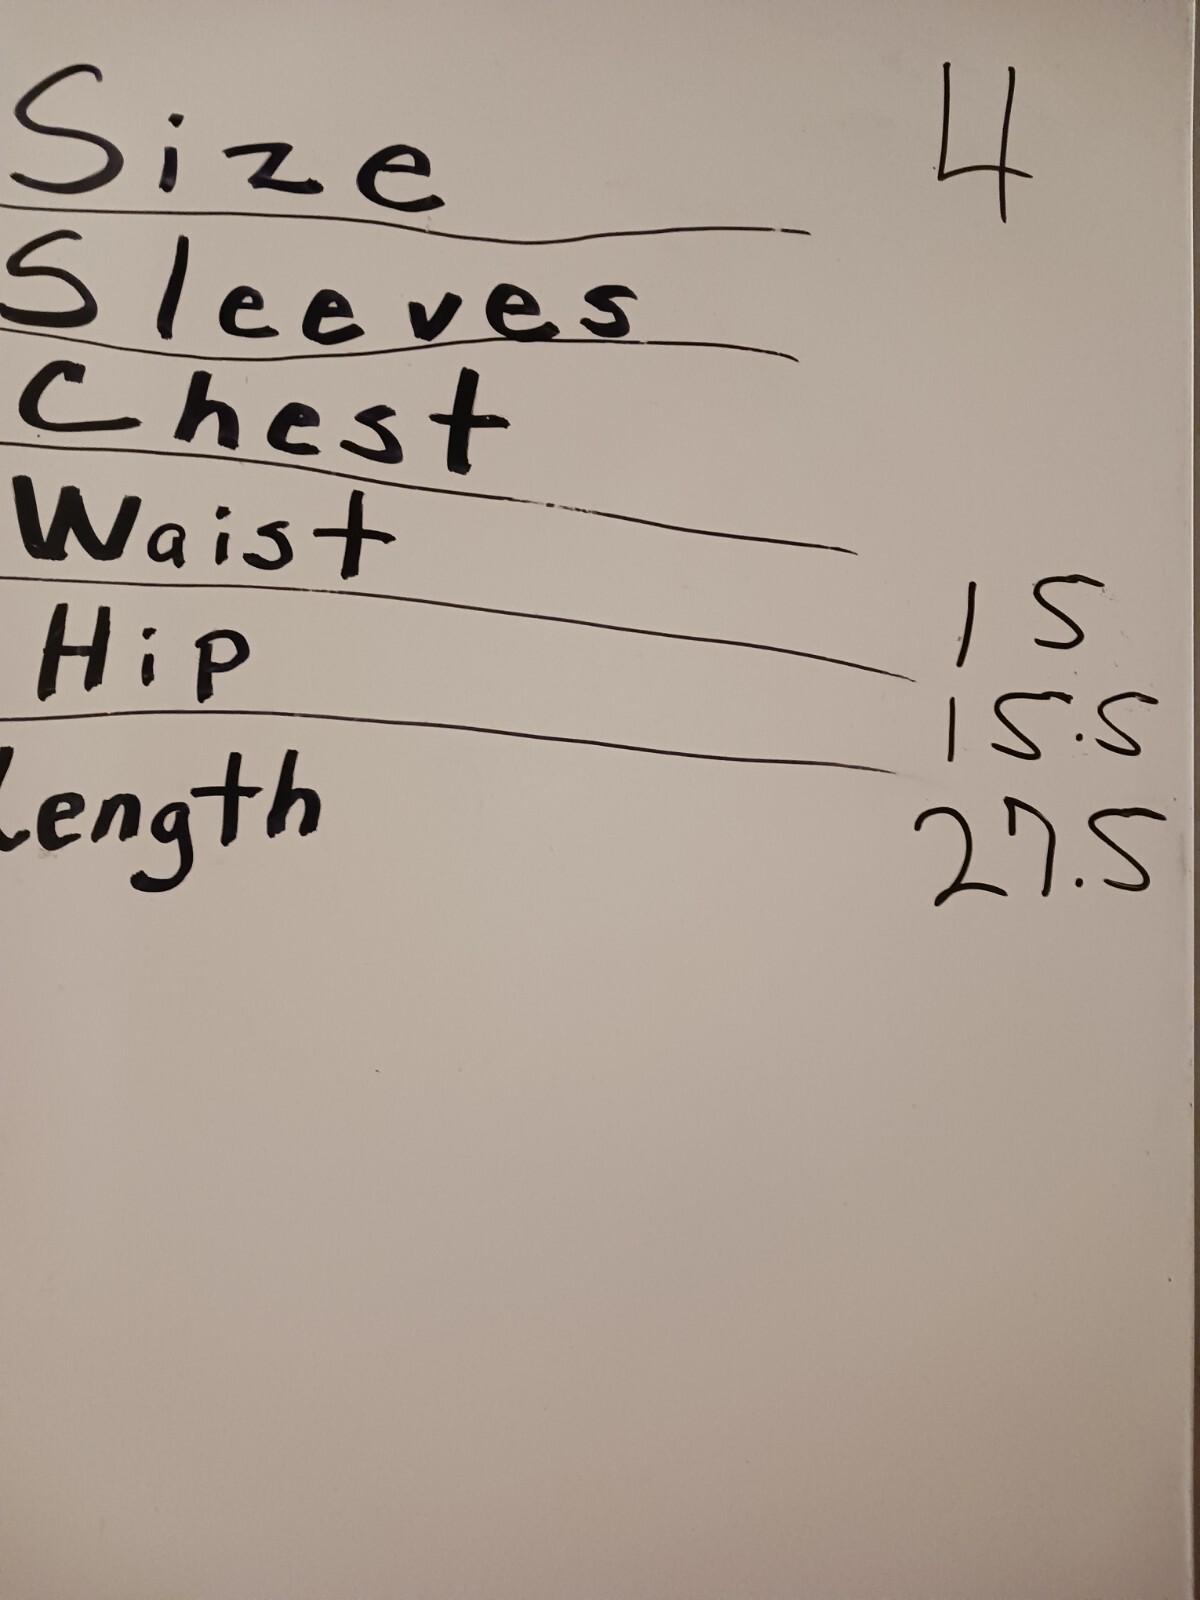 Size 4
Sleeves
Chest
Waist 15
Hip 15.5
Length 27.5